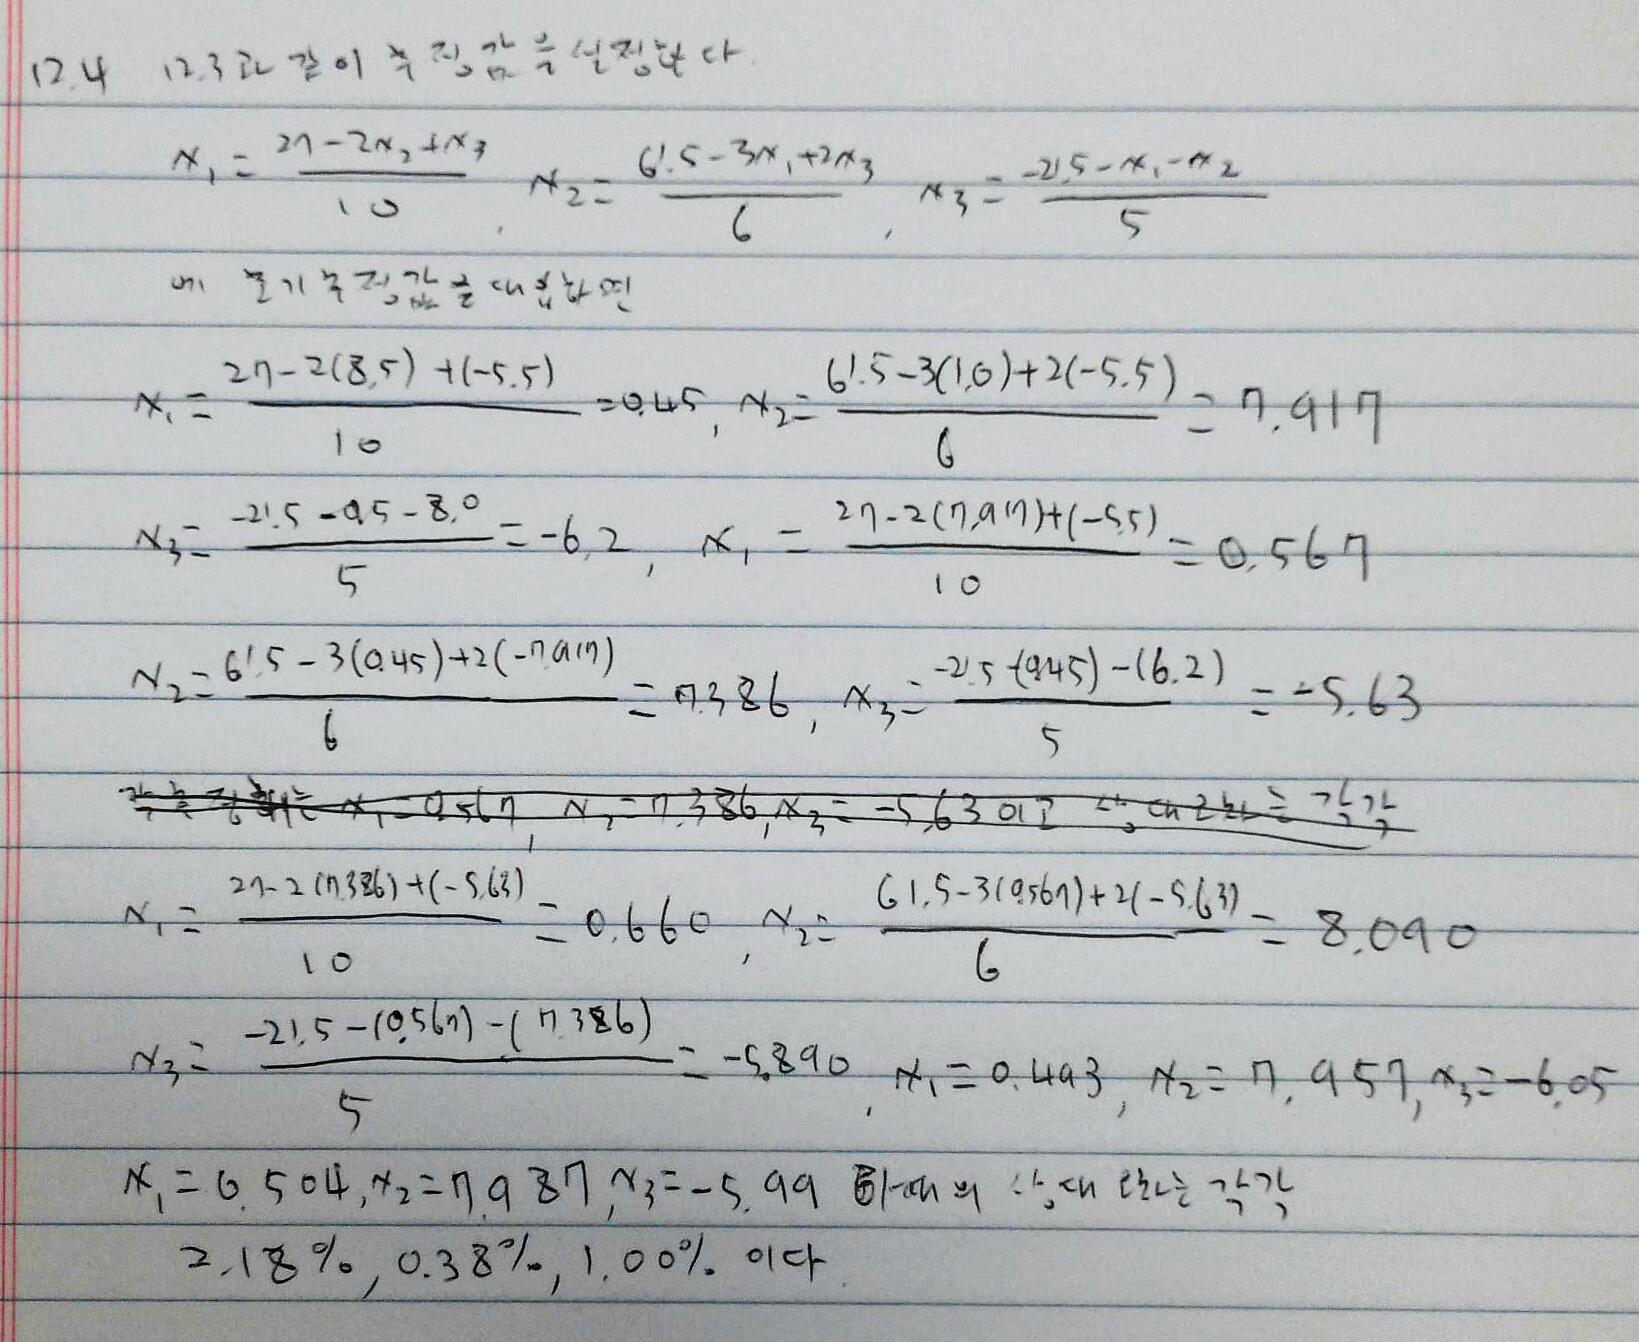 12.4 12.3과 같이 추정값을 설정한다.
x₁ = (27-2x₂+x₃)/10, x₂ = (61.5-3x₁+2x₃)/6, x₃ = (-21.5-x₁-x₂)/5
에 초기추정값을 대입하면
x₁ = (27-2(8.5)+(-5.5))/10 = 0.45, x₂ = (61.5-3(1.0)+2(-5.5))/6 = 7.917
x₃ = (-21.5-0.5-8.0)/5 = -6.2, x₁ = (27-2(7.917)+(-5.5))/10 = 0.567
x₂ = (61.5-3(0.45)+2(-7.917))/6 = 7.386, x₃ = (-21.5-(0.45)-(6.2))/5 = -5.63
x₁ = 0.567, x₂ = 7.386, x₃ = -5.63이고 상대오차는 각각
x₁ = (27-2(7.386)+(-5.63))/10 = 0.660, x₂ = (61.5-3(0.567)+2(-5.63))/6 = 8.090
x₃ = (-21.5-(0.567)-(7.386))/5 = -5.890, x₁ = 0.493, x₂ = 7.957, x₃ = -6.05
x₁ = 0.504, x₂ = 7.987, x₃ = -5.99 이때의 상대오차는 각각
2.18%, 0.38%, 1.00% 이다.